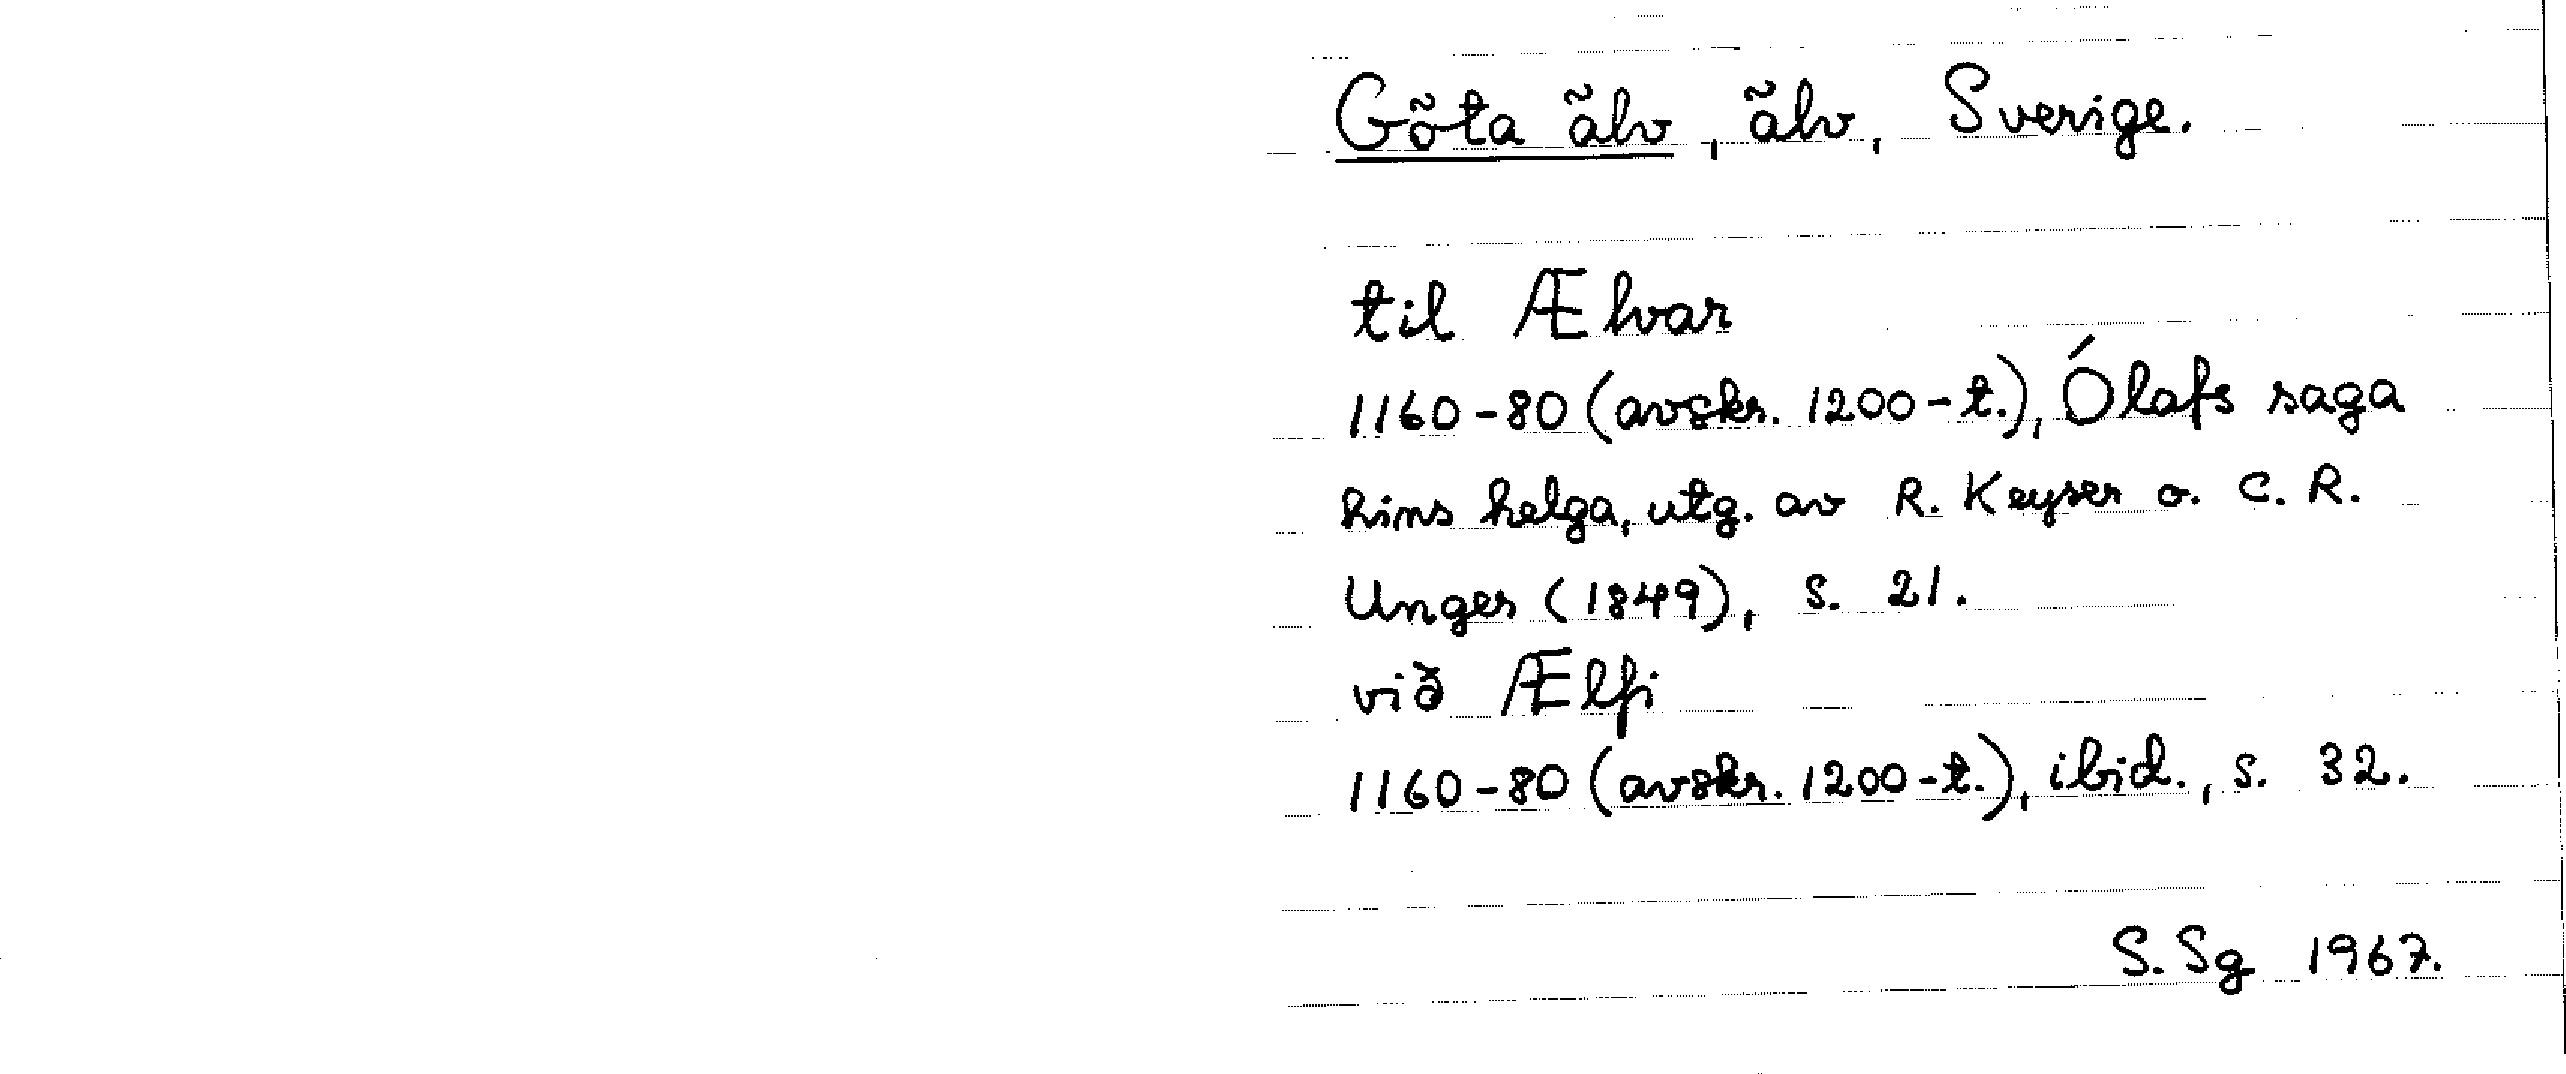 Göta älv, älv, Sverige.
til Ælvar
1160-80 (avskr. 1200-t.), Ólafs saga
hins helga, utg. av R. Keyser o. C. R.
Unger (1849), s. 21.
við Ælfi
1160-80 (avskr. 1200-t.), ibid., s. 32.
S. Sg 1967.